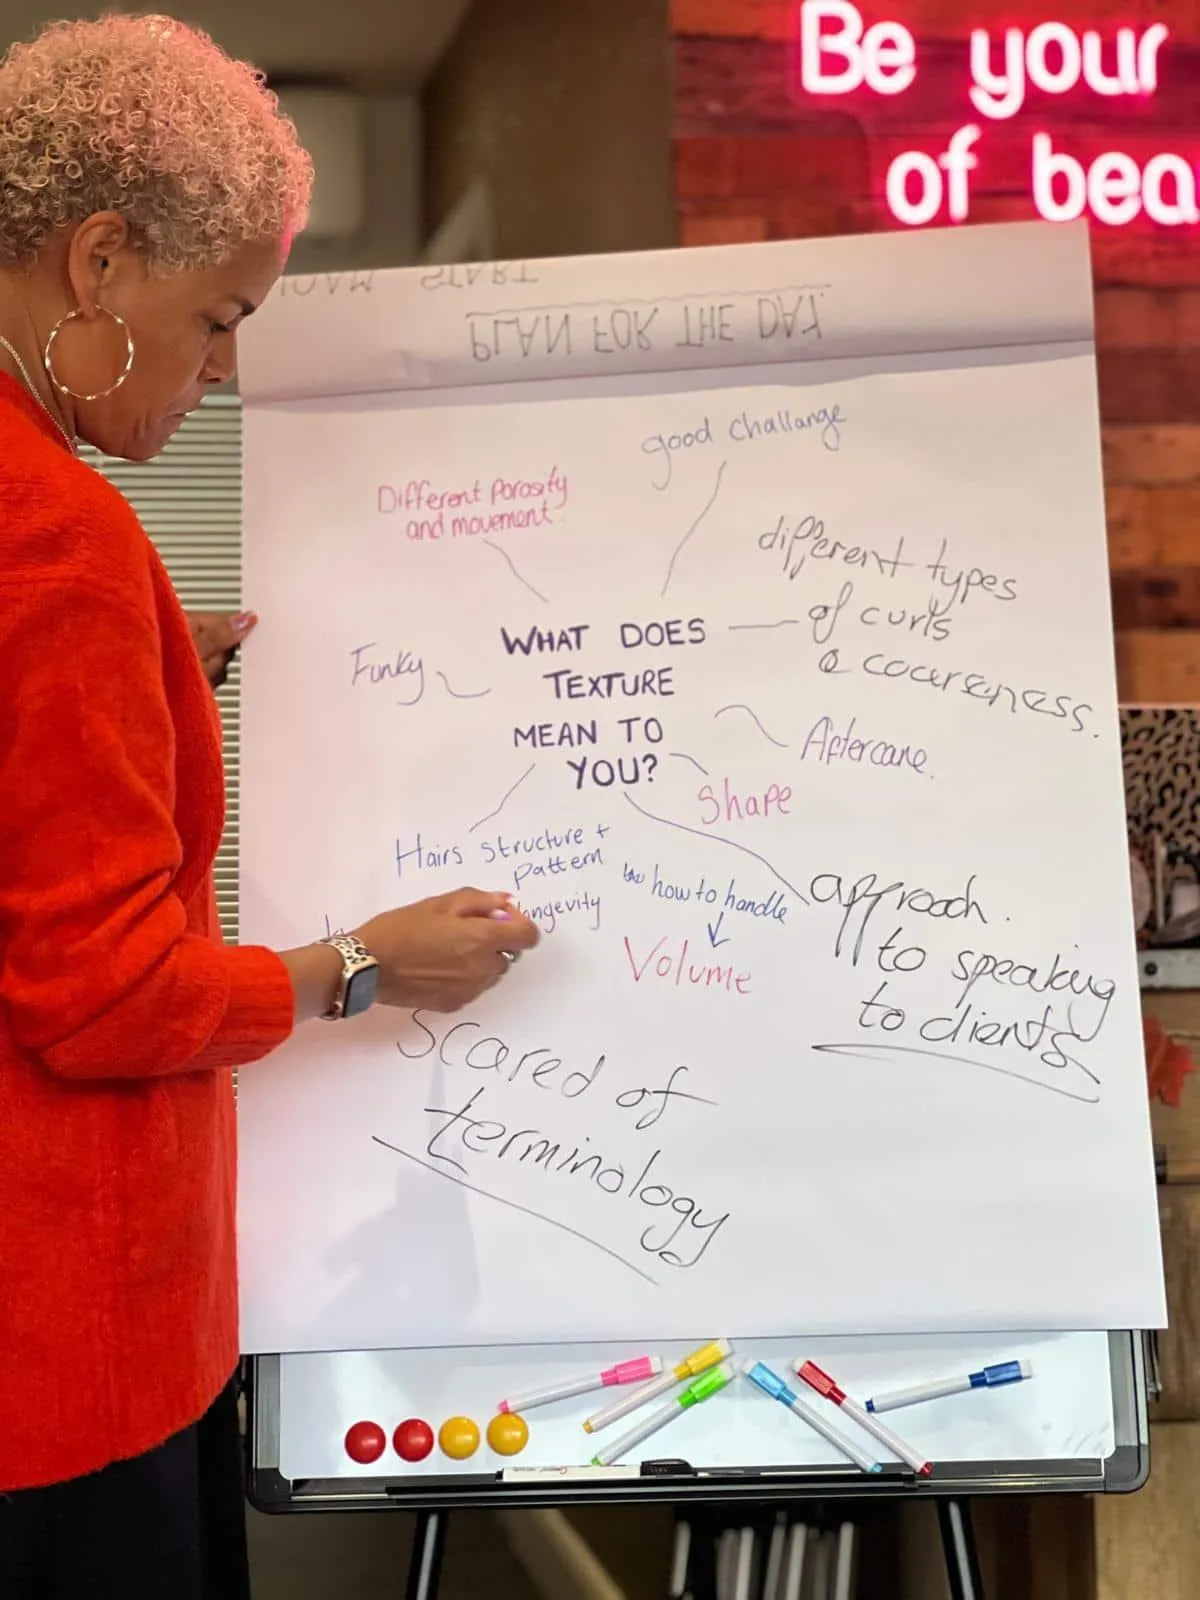 Be your
of bea
10AM START
PLAN FOR THE DAY.
good challange
Different Porosity
and movement.
different types
of curls
& coarseness.
WHAT DOES
TEXTURE
MEAN TO
YOU?
Funky
Aftercare.
Shape
Hairs structure +
pattern
longevity
how to handle
Volume
approach.
to speaking
to clients
Scared of
terminology